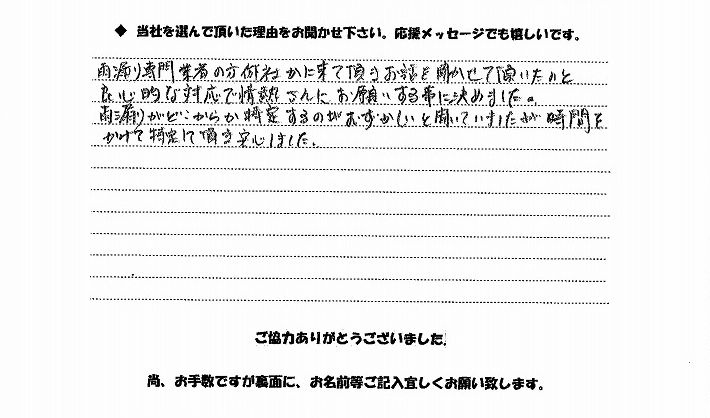 ◆ 当社を選んで頂いた理由をお聞かせ下さい。応援メッセージでも嬉しいです。
雨漏り専門業者の方何社かに来て頂きお話を聞かせて頂いたのと
良心的な対応で情熱さんにお願いする事に決めました。
雨漏りがどこからか特定するのがむずかしいと聞いていましたが時間を
かけて特定して頂き安心しました。
ご協力ありがとうございました。
尚、お手数ですが裏面に、お名前等ご記入宜しくお願い致します。